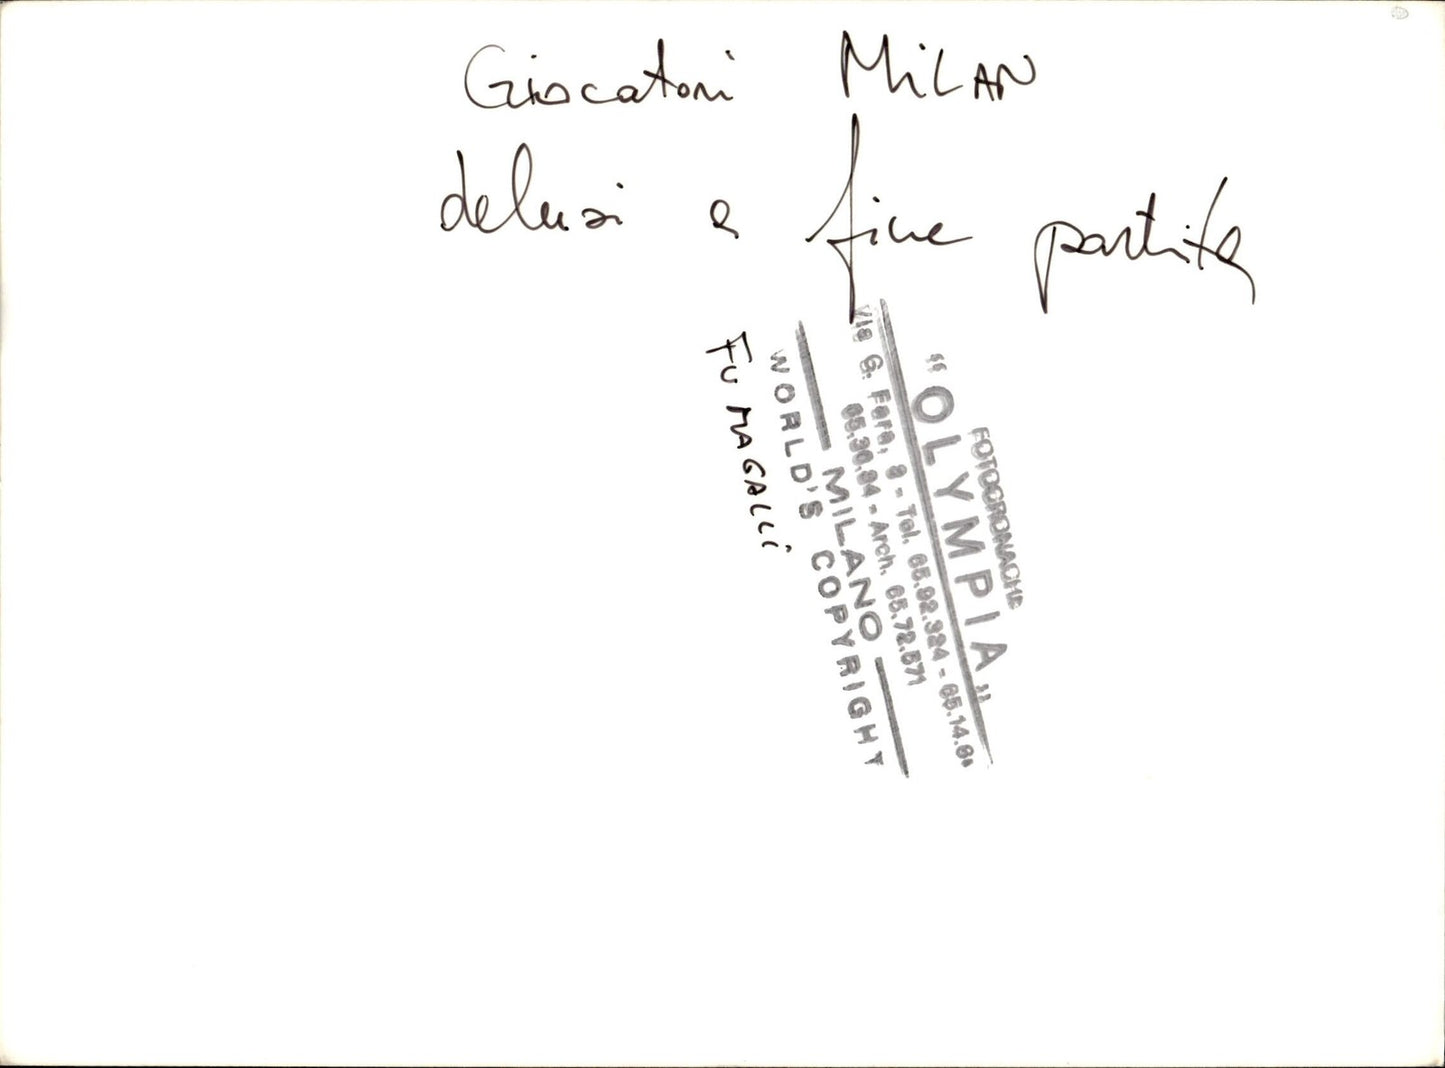 Giocatori MILAN
delusi a fine partita
FUMAGALLI
FOTOCRONACHE
"OLYMPIA"
Via G. Fara, 8 - Tel. 65.92.324 - 65.14.
65.30.94 - Arch. 65.72.571
MILANO
WORLD'S COPYRIGHT